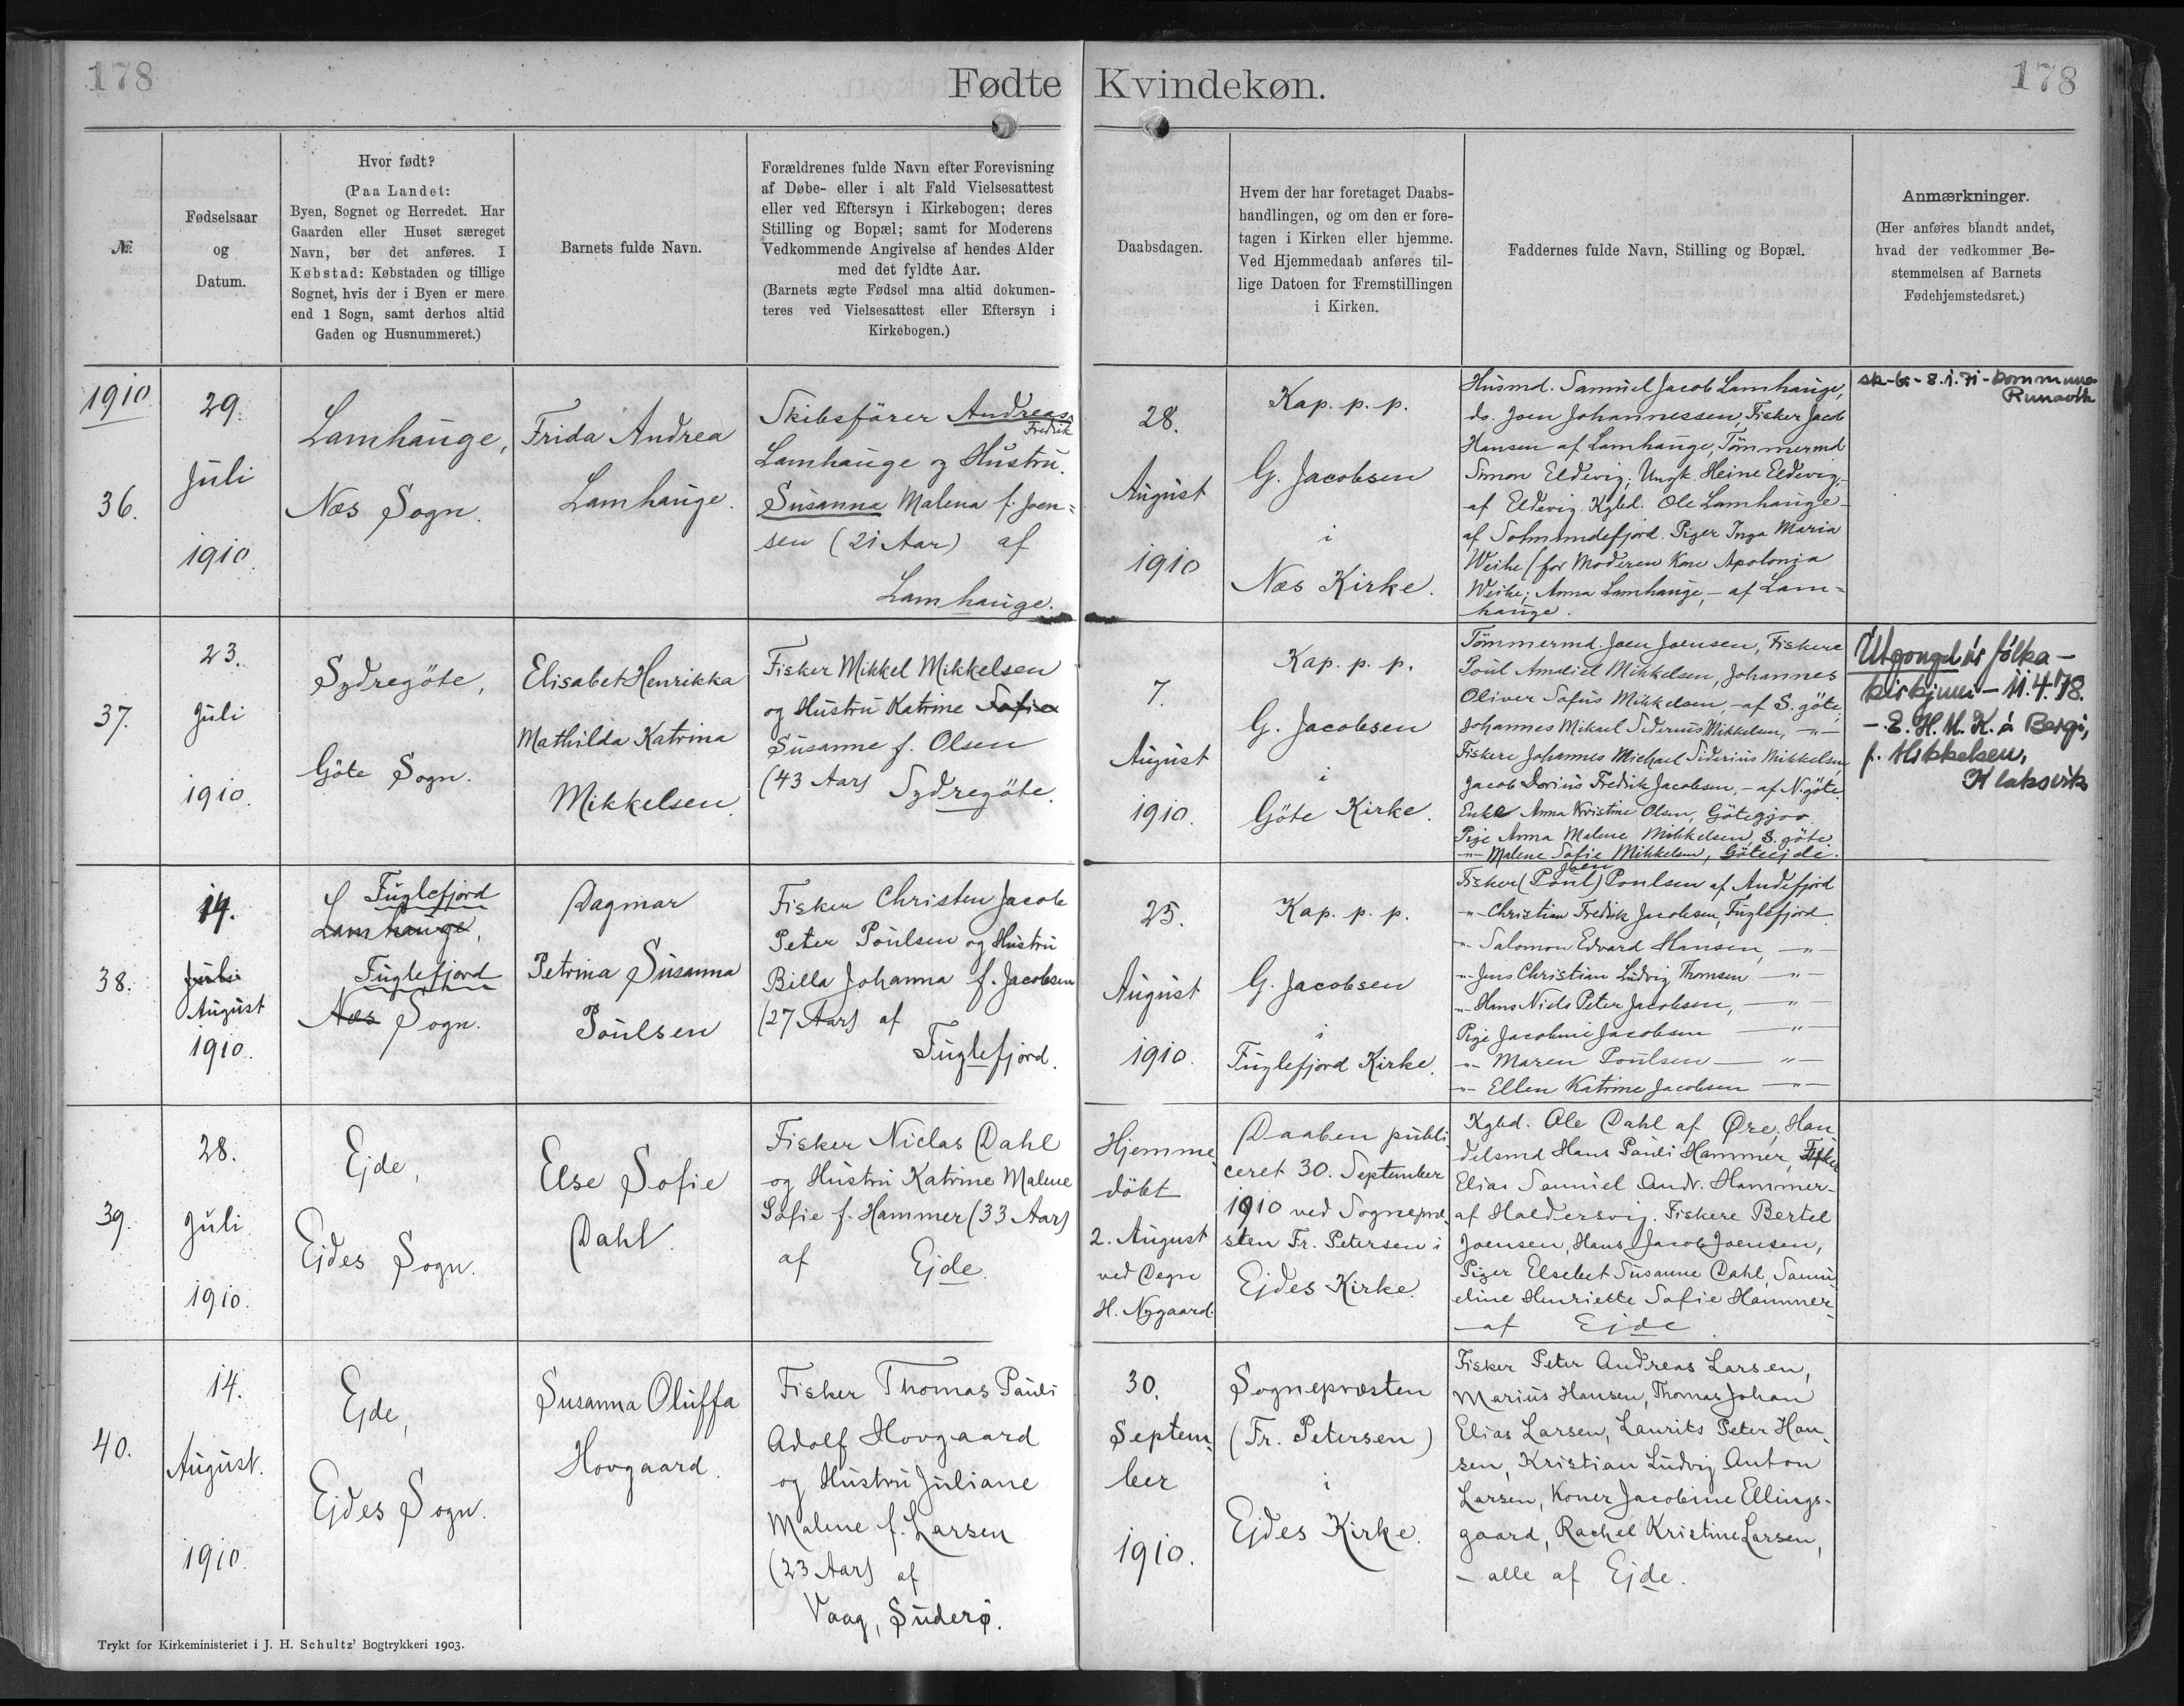 178
Fødte Kvindekøn.
178
№.
Fødselsaar
og
Datum.
Hvor født?
(Paa Landet:
Byen, Sognet og Herredet. Har
Gaarden eller Huset særeget
Navn, bør det anføres. I
Købstad: Købstaden og tillige
Sognet, hvis der i Byen er mere
end 1 Sogn, samt derhos altid
Gaden og Husnummeret.)
Barnets fulde Navn.
Forældrenes fulde Navn efter Forevisning
af Døbe- eller i alt Fald Vielsesattest
eller ved Eftersyn i Kirkebogen; deres
Stilling og Bopæl; samt for Moderens
Vedkommende Angivelse af hendes Alder
med det fyldte Aar.
(Barnets ægte Fødsel maa altid dokumen-
teres ved Vielsesattest eller Eftersyn i
Kirkebogen.)
Daabsdagen.
Hvem der har foretaget Daabs-
handlingen, og om den er fore-
tagen i Kirken eller hjemme.
Ved Hjemmedaab anføres til-
lige Datoen for Fremstillingen
i Kirken.
Faddernes fulde Navn, Stilling og Bopæl.
Anmærkninger.
(Her anføres blandt andet,
hvad der vedkommer Be-
stemmelsen af Barnets
Fødehjemstedsret.)
1910
36.
29.
Juli
1910.
Lamhauge,
Næs Sogn.
Frida Andrea
Lamhauge.
Skibsfører Andreas
Fredrik
Lamhauge og Hustru
Susanna Malena f. Joen=
sen (21 Aar) af
Lamhauge.
28.
August
1910
Kap. p. p.
G. Jacobsen
i
Næs Kirke.
Husmd. Samuel Jacob Lamhauge,
do. Joen Johannessen, Fisker Jacob
Hansen af Lamhauge, Tømmermd
Simon Eldevig, Ungk. Heine Eldevig,-
af Eldevig. Kgbd. Ole Lamhauge-
af Solmundefjord. Piger Inga Maria
Weihe (for Moderen Kone Apolonia
Weihe; Anna Lamhauge,- af Lam=
hauge.
sk-br-8.1.71-kommuna
Runavík
37.
23.
Juli
1910.
Sydregöte,
Göte Sogn.
Elisabet Henrikka
Mathilda Katrina
Mikkelsen.
Fisker Mikkel Mikkelsen
og Hustru Katrine Sofie
Susanne f. Olsen
(43 Aar) Sydregöte.
7.
August
1910.
Kap. p. p.
G. Jacobsen
i
Göte Kirke.
Tömmermd. Joen Joensen, Fiskere
Poul Amdiel Mikkelsen, Johannes
Oliver Sofus Mikkelsen,- af S. göte,
Johannes Mikael Siderius Mikkelsen, -"-
Fiskere Johannes Michael Siderius Mikkelsen,
Jacob Dorius Fredrik Jacobsen,- af N. göte.
Enke Anna Kristine Olsen, Götegjov.
Pige Anna Malene Mikkelsen, S. göte
-"- Malene Sofie Mikkelsen, Göteejde.
Útgongd úr fólka-
kirkjuni - 11.4.78.
- E. H. M. K. á Bergi,
f. Mikkelsen,
Klaksvík
38.
14.
Juli
August
1910.
Fuglefjord
Lamhauge,
Fuglefjord
Næs Sogn.
Dagmar
Petrina Susanna
Poulsen
Fisker Christen Jacob
Peter Poulsen og Hustru
Billa Johanna f. Jacobsen
(27 Aar) af
Fuglefjord.
25.
August
1910.
Kap. p. p.
G. Jacobsen
i
Fuglefjord Kirke.
Joen
Fisker (Poul) Poulsen af Andefjord
-"- Christian Fredrik Jacobsen, Fuglefjord
-"- Salomon Edvard Hansen, -"-
-"- Jens Christian Ludvig Thomsen -"-
-"- Hans Niels Peter Jacobsen, -"-
Pige Jacobine Jacobsen -"-
-"- Maren Poulsen -"-
-"- Ellen Katrine Jacobsen -"-
39.
28.
Juli
1910.
Ejde,
Ejdes Sogn.
Else Sofie
Dahl.
Fisker Niclas Dahl
og Hustru Katrine Malene
Sofie f. Hammer (33 Aar)
af Ejde.
Hjemme
döbt
2. August
ved Degn
H. Nygaard.
Daaben publi
ceret 30. September
1910 ved Sognepræ
sten Fr. Petersen i
Ejdes Kirke.
Kgbd. Ole Dahl af Øre, Han
delsmd Hans Pauli Hammer, Fisker
Elias Samuel Andr. Hammer-
af Haldersvig. Fiskere Bertel
Joensen, Hans Jacob Joensen,
Piger Elsebet Susanne Dahl, Samu
eline Henriette Sofie Hammer-
-af Ejde.
40.
14.
August.
1910.
Ejde,
Ejdes Sogn.
Susanna Oluffa
Hovgaard.
Fisker Thomas Pauli
Adolf Hovgaard
og Hustru Juliane
Malene f. Larsen
(23 Aar) af
Vaag, Suderø.
30.
Septem
ber
1910.
Sognepræsten
(Fr. Petersen)
i
Ejdes Kirke.
Fisker Peter Andreas Larsen,
Marius Hansen, Thomas Johan
Elias Larsen, Laurits Peter Han
sen, Kristian Ludvig Anton
Larsen, Koner Jacobine Ellings-
gaard, Rachel Kristine Larsen,
- alle af Ejde.
Trykt for Kirkeministeriet i J. H. Schultz' Bogtrykkeri 1903.